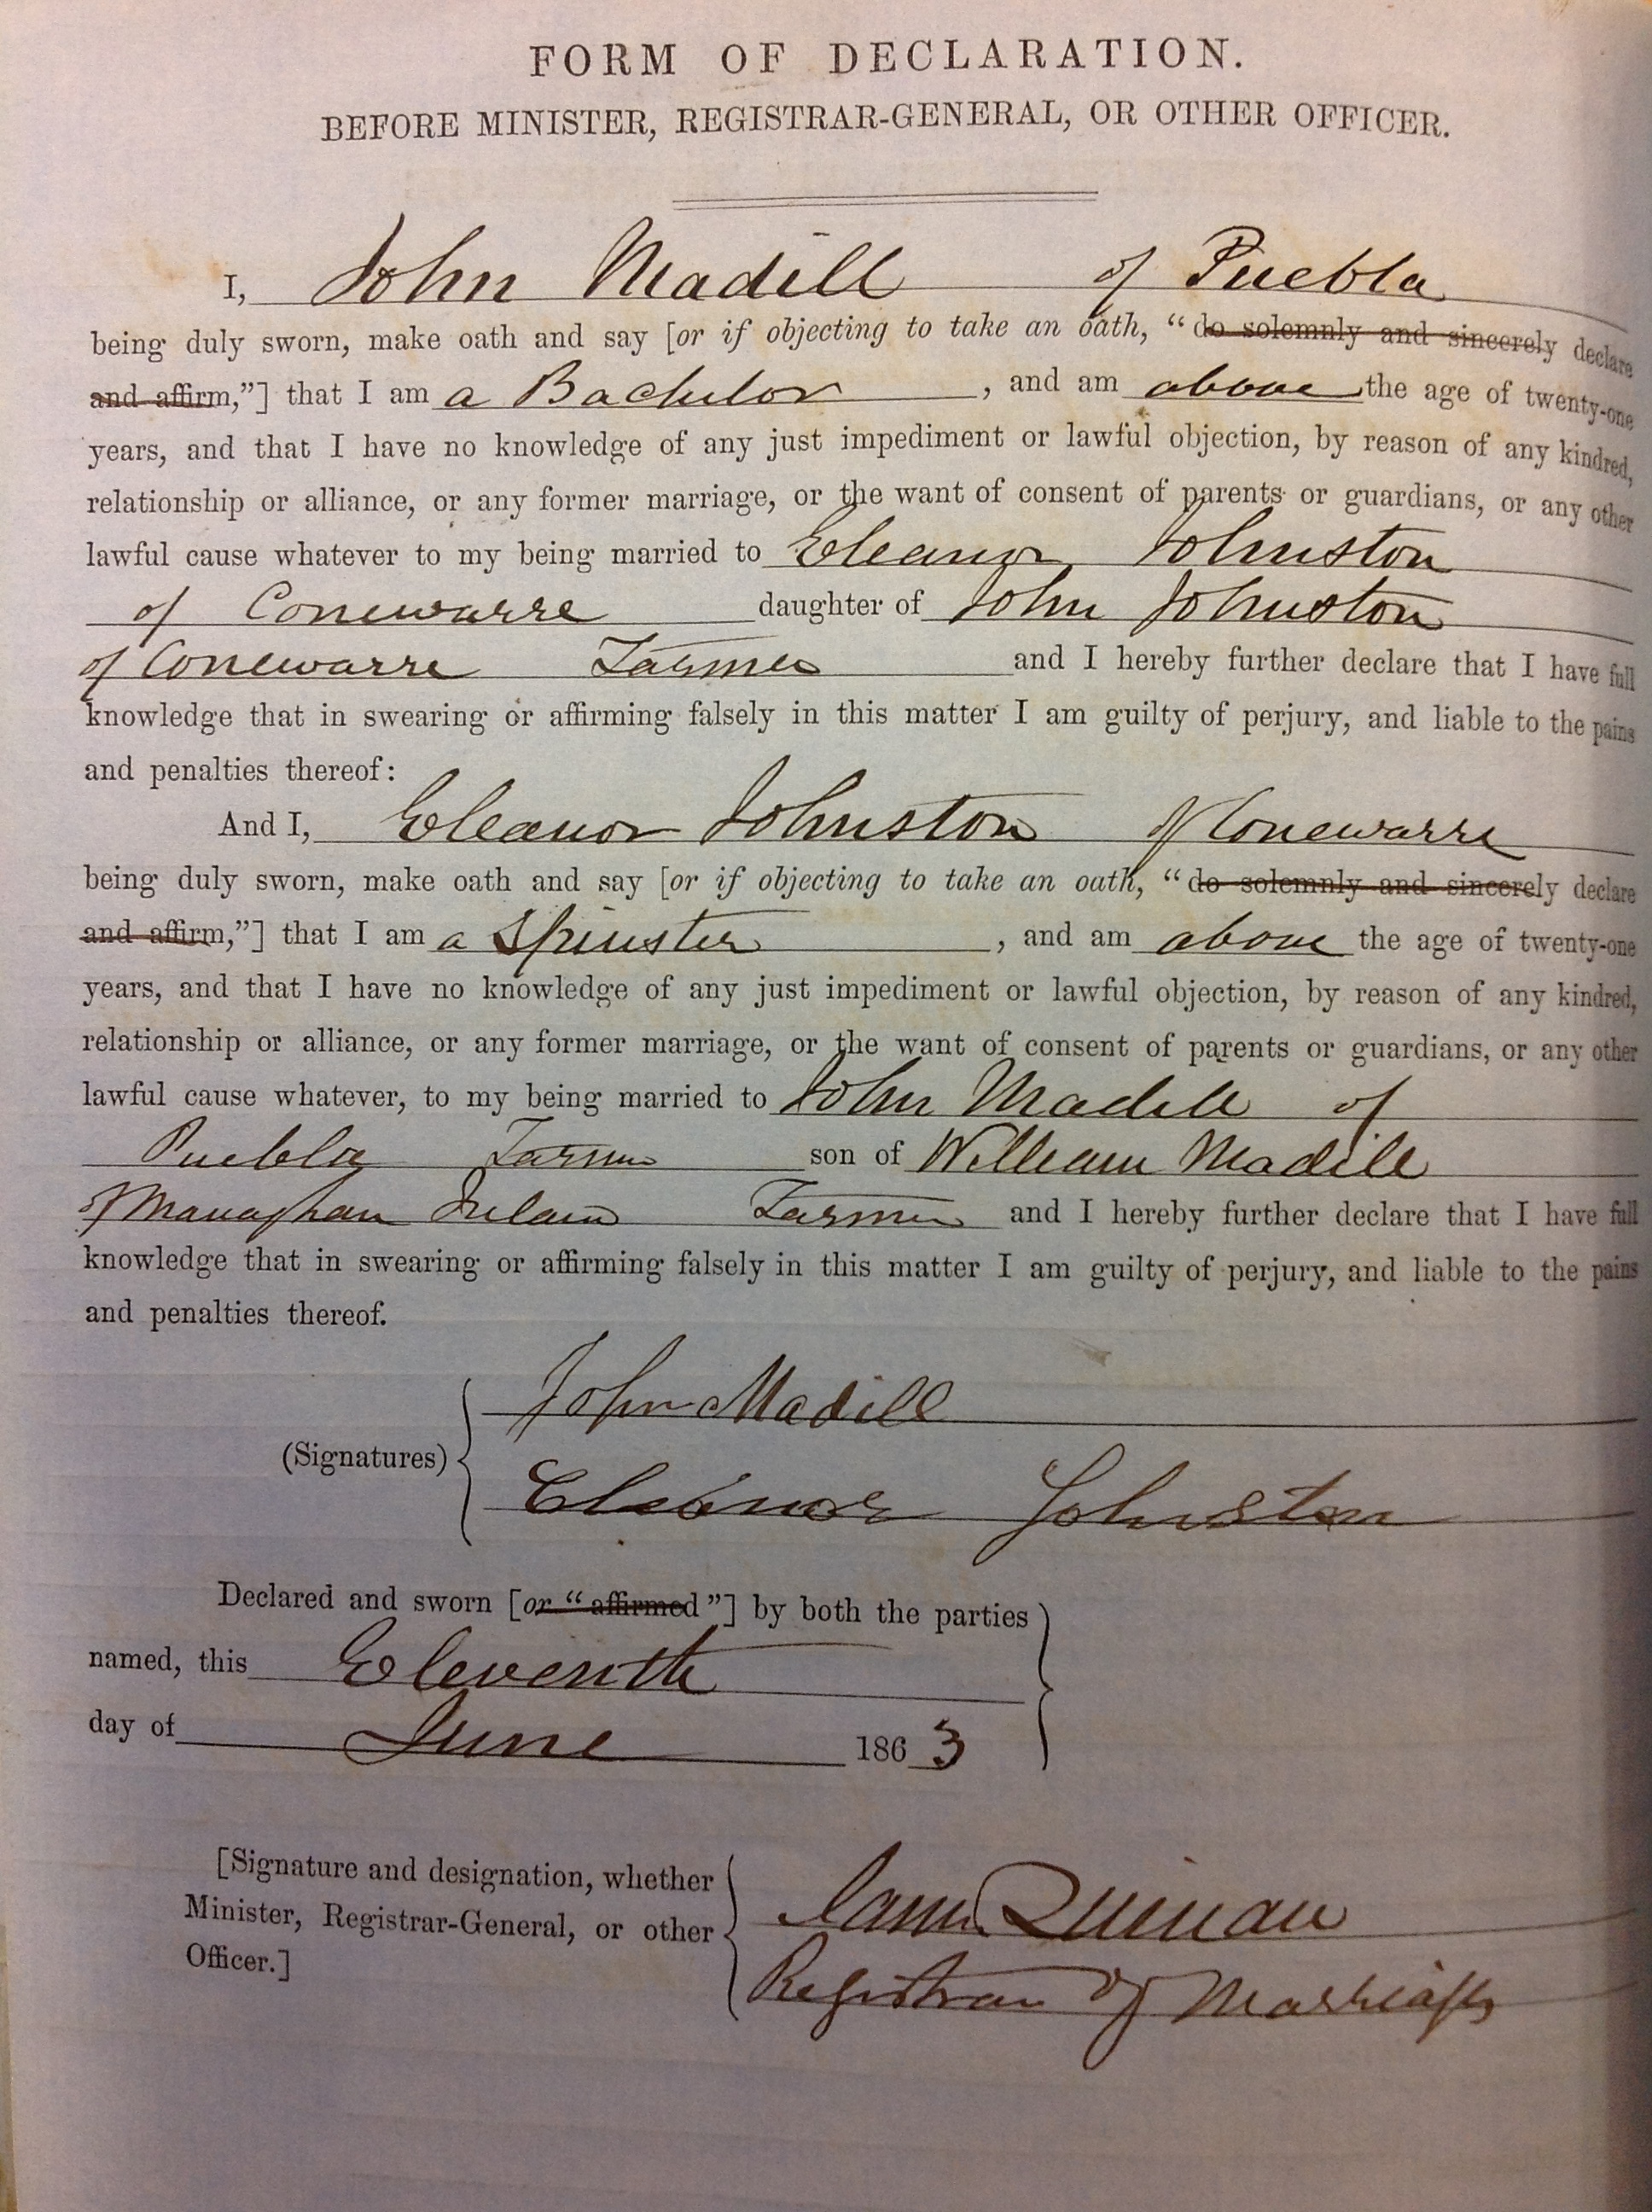 FORM OF DECLARATION.
BEFORE MINISTER, REGISTRAR-GENERAL, OR OTHER OFFICER.
I, John Madill of Puebla
being duly sworn, make oath and say [or if objecting to take an oath, “do solemnly and sincerely declare
and affirm,”] that I am a Bachelor, and am above the age of twenty-one
years, and that I have no knowledge of any just impediment or lawful objection, by reason of any kindred,
relationship or alliance, or any former marriage, or the want of consent of parents or guardians, or any other
lawful cause whatever to my being married to Eleanor Johnston
of Conewarre daughter of John Johnston
of Conewarre Farmer and I hereby further declare that I have full
knowledge that in swearing or affirming falsely in this matter I am guilty of perjury, and liable to the pains
and penalties thereof:
And I, Eleanor Johnston of Conewarre
being duly sworn, make oath and say [or if objecting to take an oath, “do solemnly and sincerely declare
and affirm,”] that I am a Spinster, and am above the age of twenty-one
years, and that I have no knowledge of any just impediment or lawful objection, by reason of any kindred,
relationship or alliance, or any former marriage, or the want of consent of parents or guardians, or any other
lawful cause whatever, to my being married to John Madill of
Puebla Farmer son of William Madill
of Managhan Ireland Farmer and I hereby further declare that I have full
knowledge that in swearing or affirming falsely in this matter I am guilty of perjury, and liable to the pains
and penalties thereof.
(Signatures)
John Madill
Eleanor Johnston
Declared and sworn [or “affirmed”] by both the parties
named, this Eleventh
day of June 1863
[Signature and designation, whether
Minister, Registrar-General, or other
Officer.]
Quinan
Registrar of Marriages